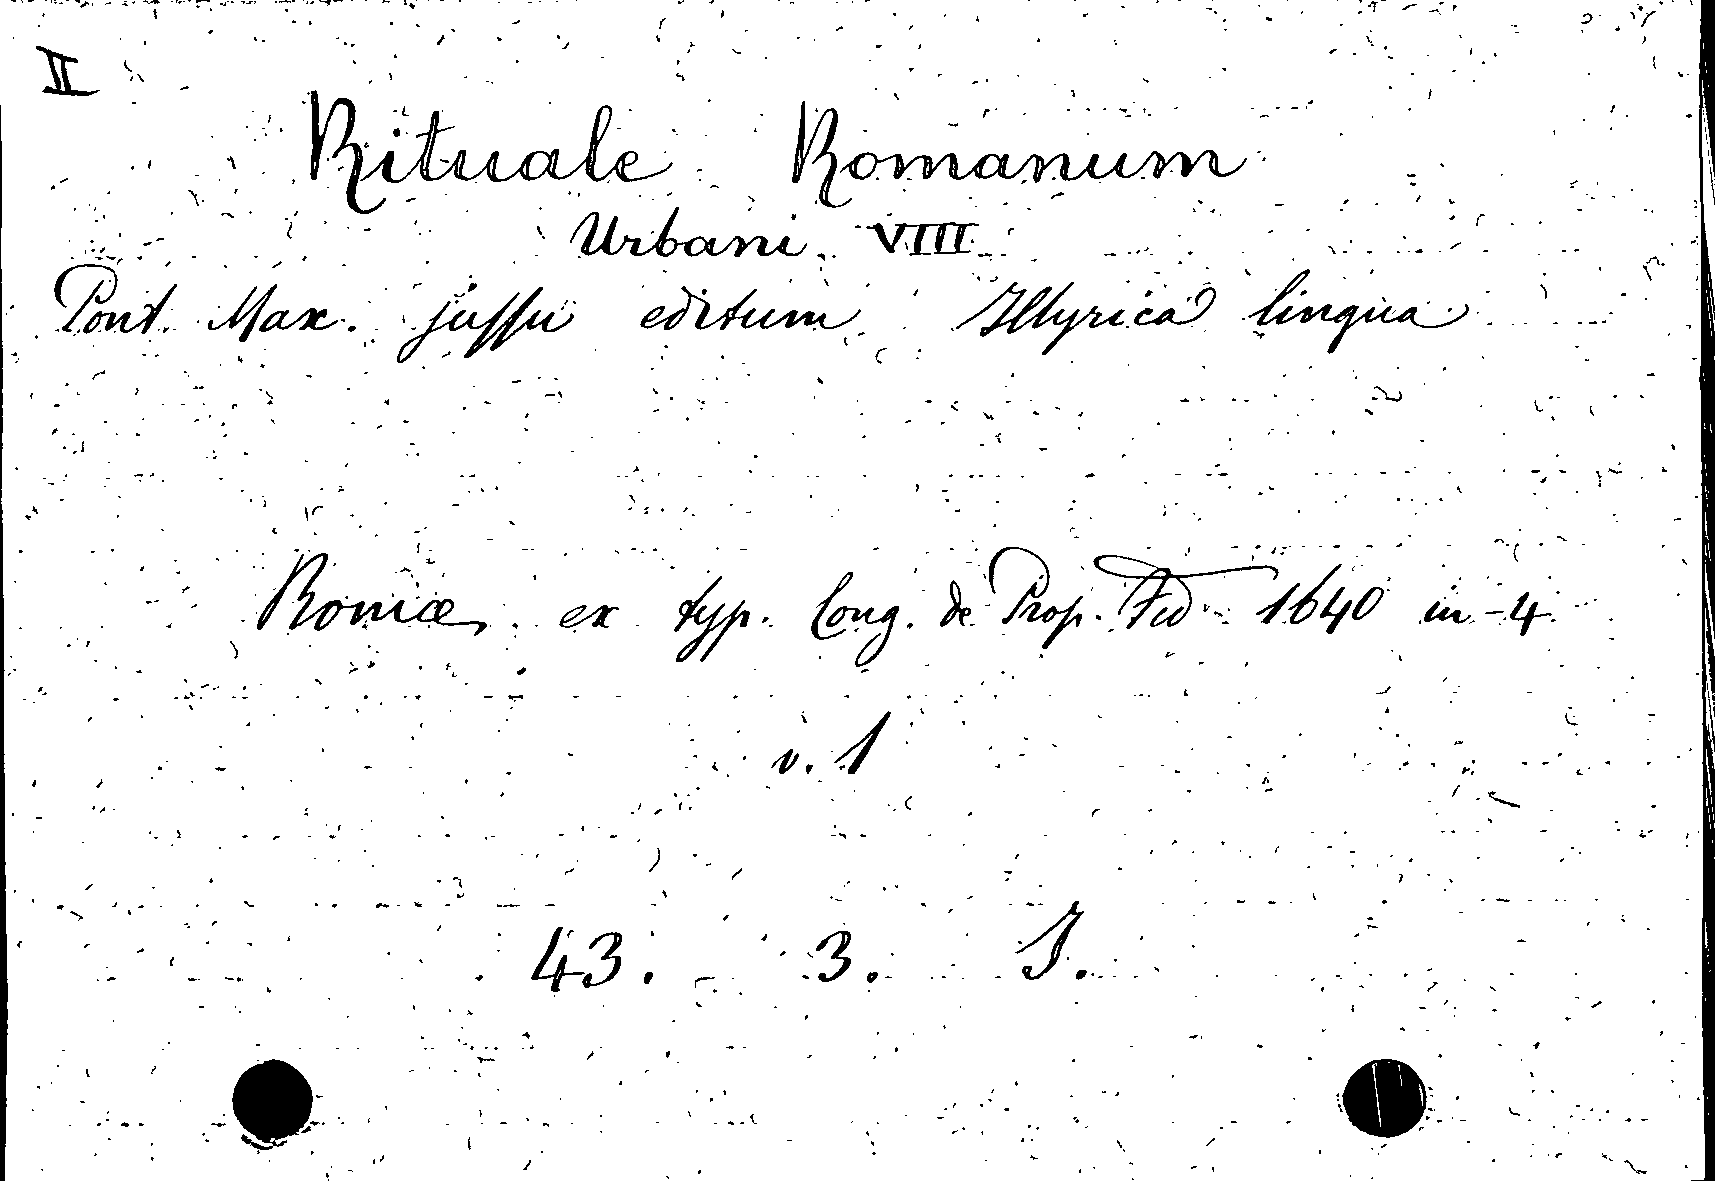 II
Rituale Romanum
Urbani VIII
Pont. Max. jussu editum Illyrica lingua
Romæ, ex typ. Cong. de Prop. Fid 1640 in-4
v. 1
43. 3. J.